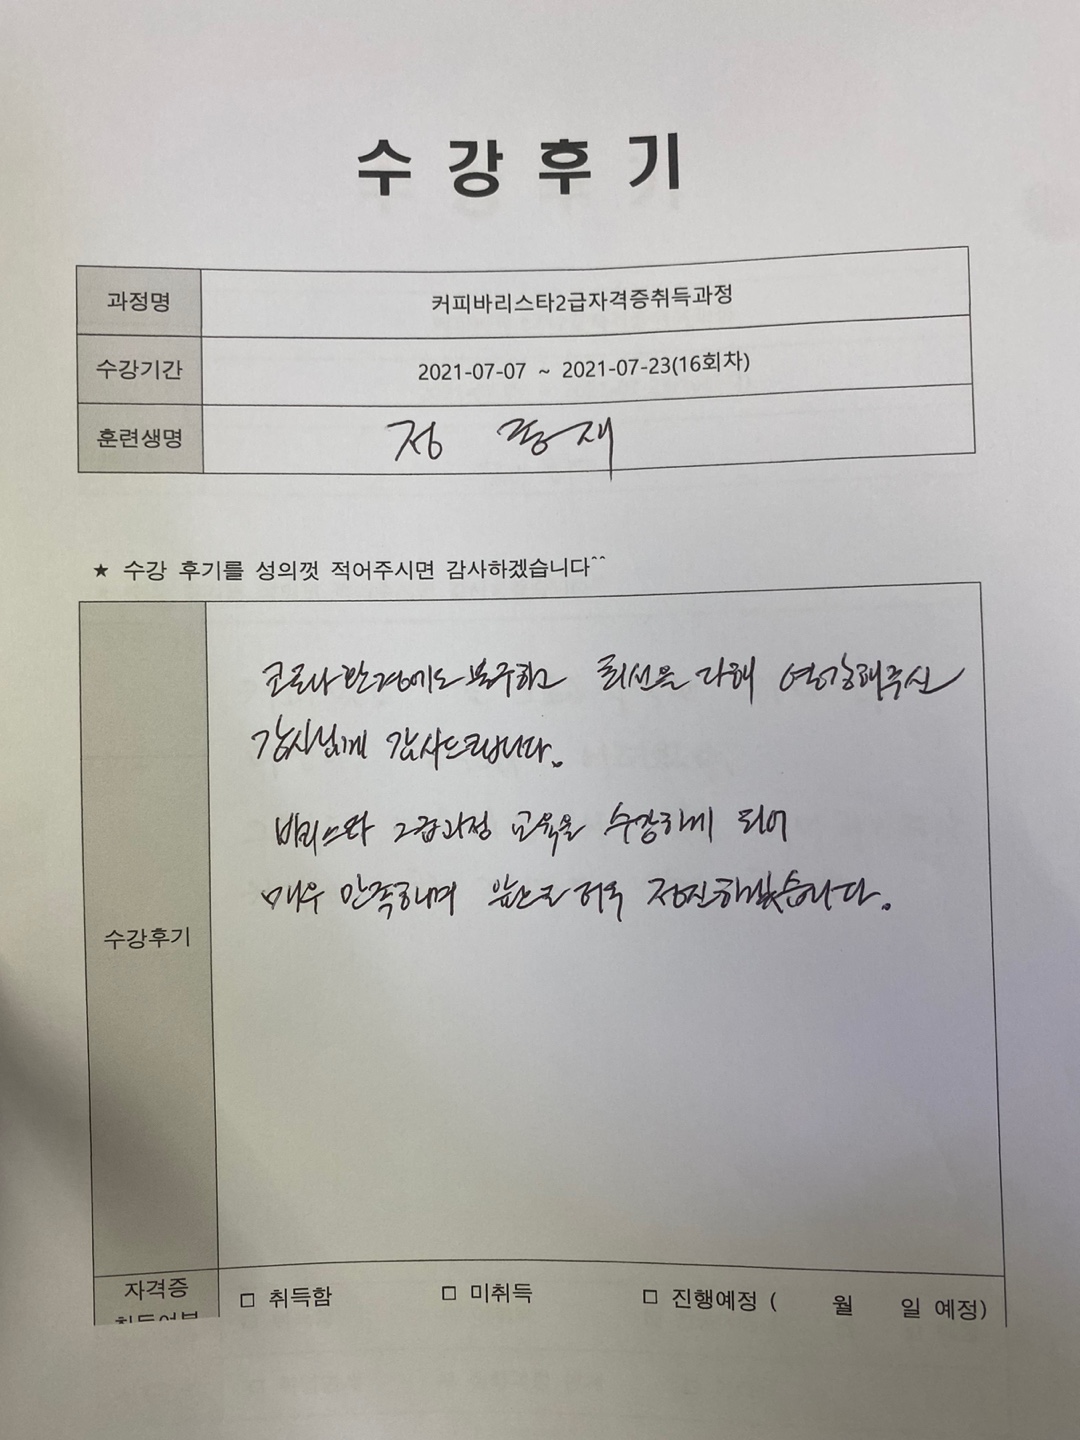 수강후기
과정명 커피바리스타2급자격증취득과정
수강기간 2021-07-07 ~ 2021-07-23(16회차)
훈련생명 정 동재
★ 수강 후기를 성의껏 적어주시면 감사하겠습니다^^
코로나 환경에도 불구하고 최선을 다해 열강해주신
강사님께 감사드립니다.
바리스타 2급과정 교육을 수강하게 되어
매우 만족하며 앞으로 더욱 정진하겠습니다.
수강후기
자격증
□ 취득함 □ 미취득 □ 진행예정 ( 월 일 예정)